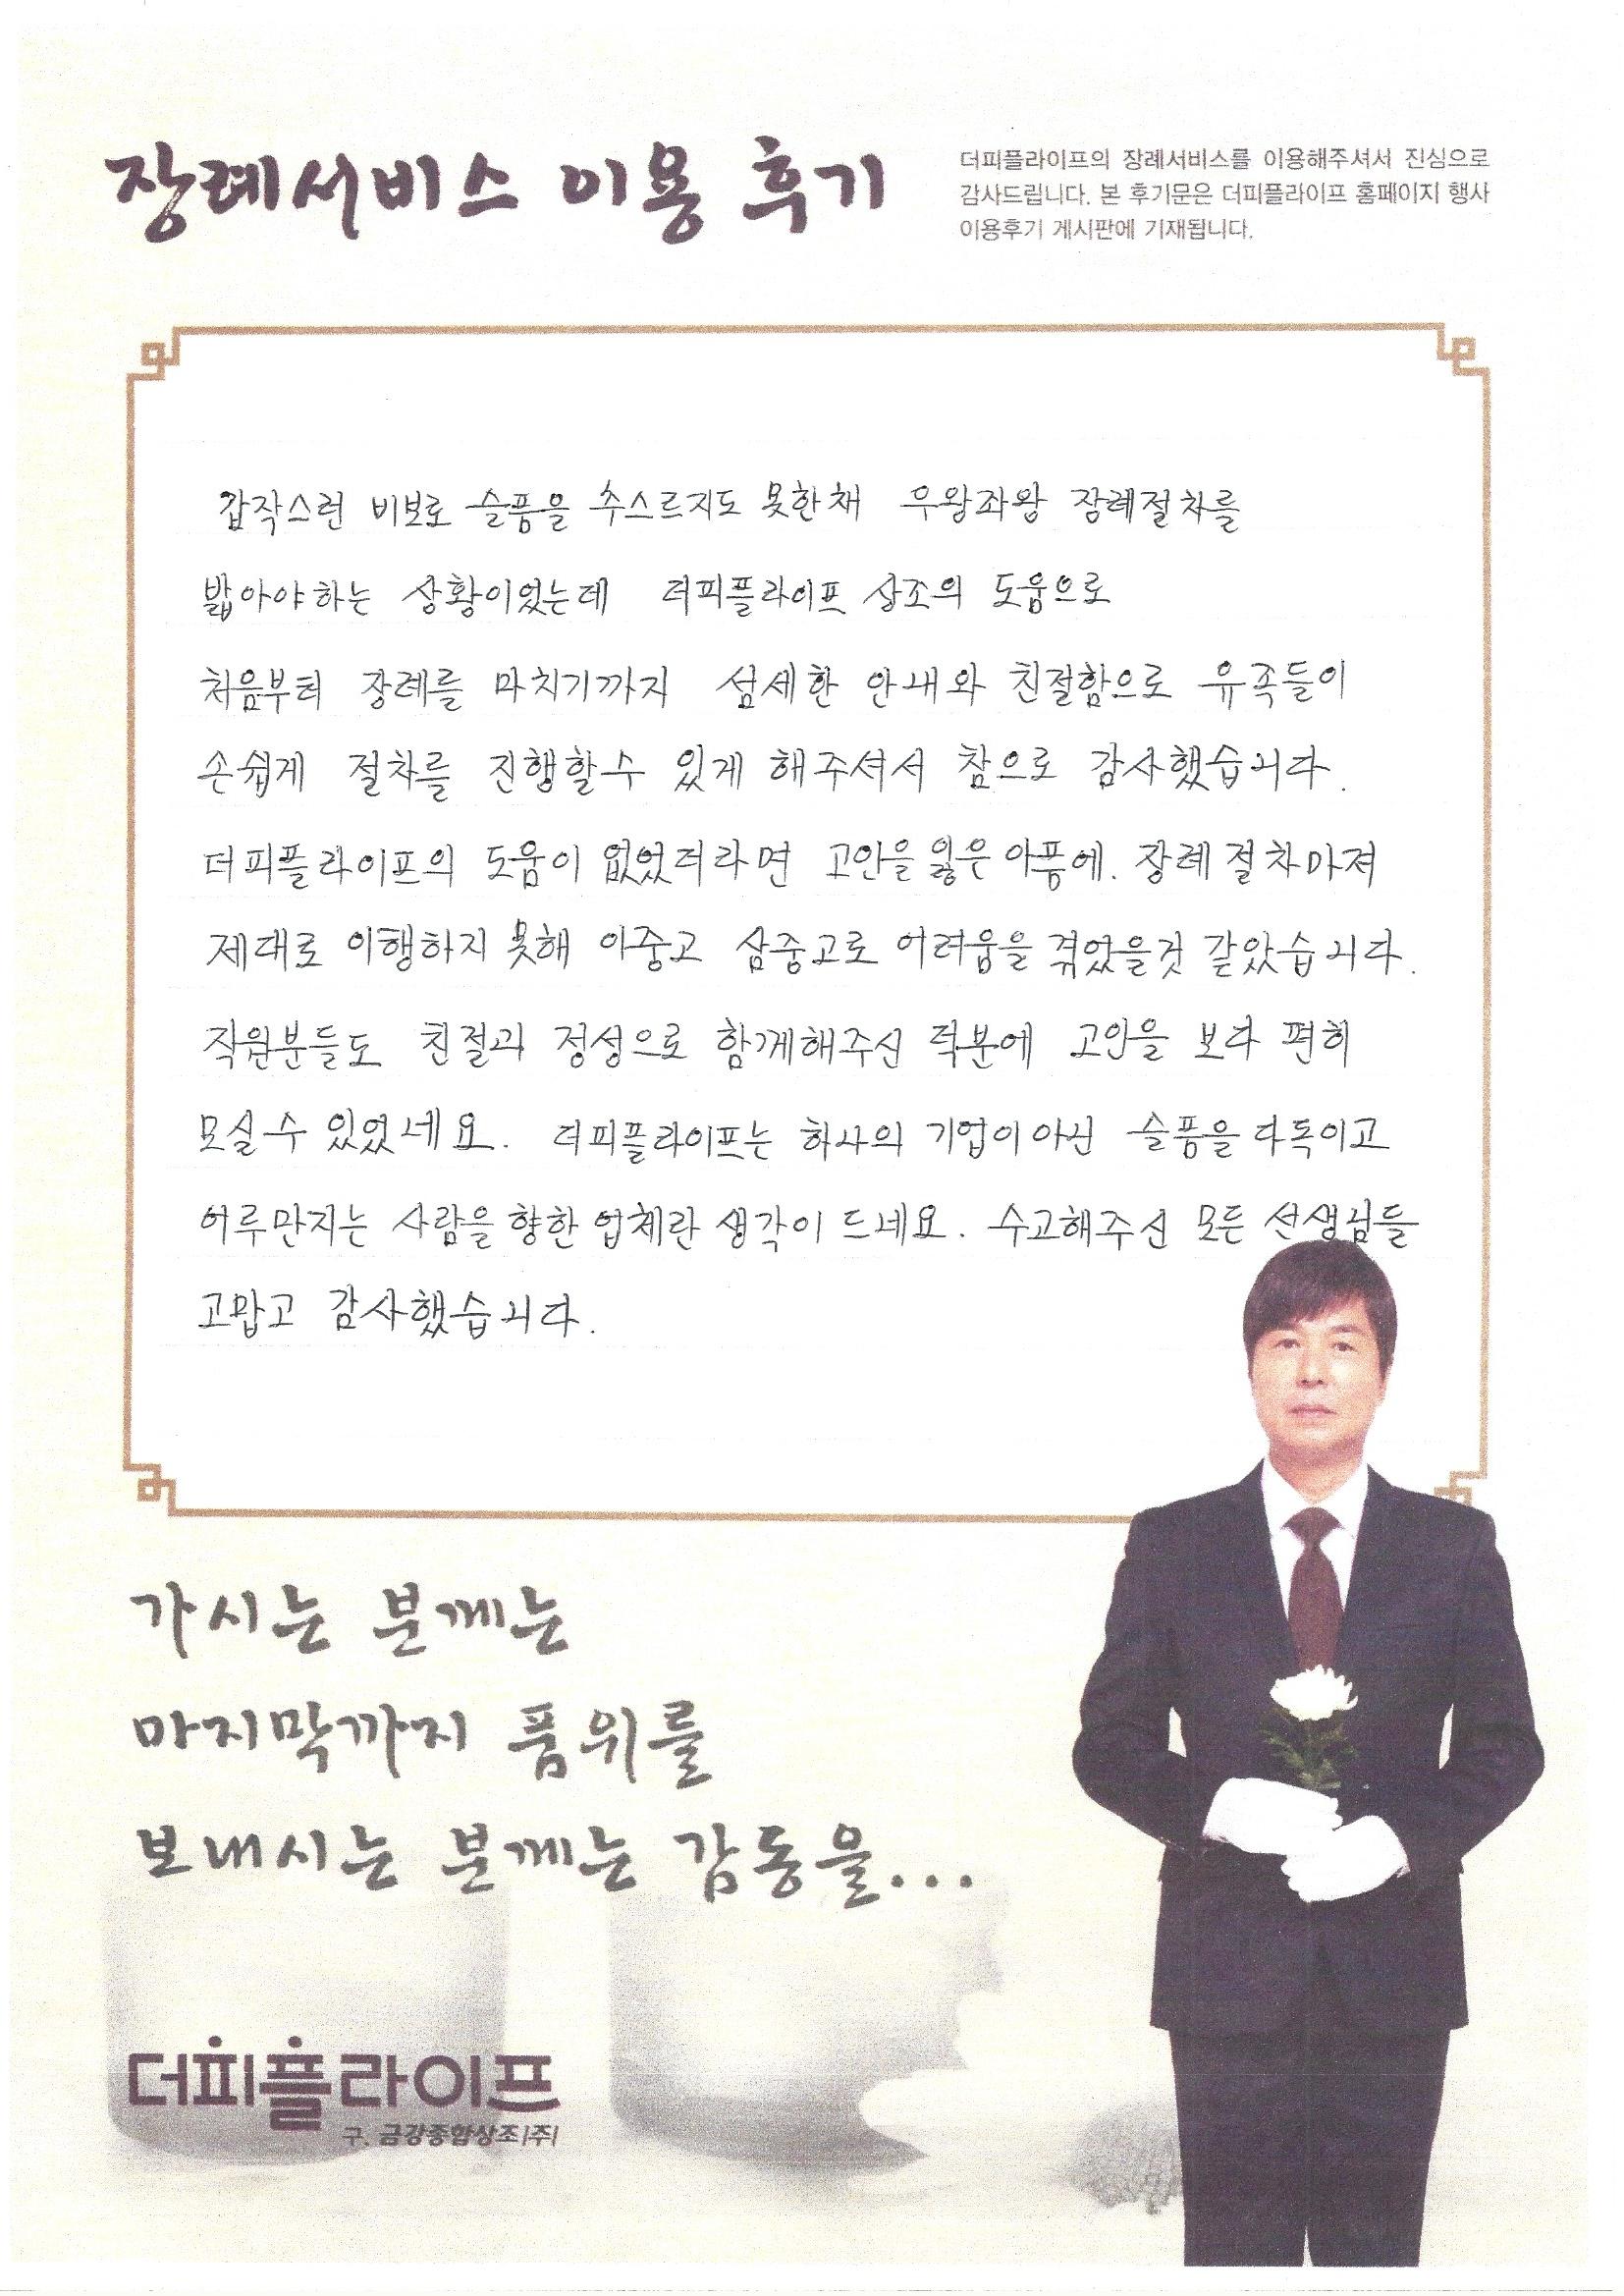 장례서비스 이용 후기
더피플라이프의 장례서비스를 이용해주셔서 진심으로
감사드립니다. 본 후기문은 더피플라이프 홈페이지 행사
이용후기 게시판에 기재됩니다.
갑작스런 비보로 슬픔을 추스르지도 못한채 우왕좌왕 장례절차를
밟아야하는 상황이었는데 더피플라이프 상조의 도움으로
처음부터 장례를 마치기까지 섬세한 안내와 친절함으로 유족들이
손쉽게 절차를 진행할수 있게 해주셔서 참으로 감사했습니다.
더피플라이프의 도움이 없었더라면 고인을 잃은 아픔에. 장례 절차마져
제대로 이행하지 못해 이중고 삼중고로 어려움을 겪었을것 같았습니다.
직원분들도 친절과 정성으로 함께해주신 덕분에 고인을 보다 편히
모실수 있었네요. 더피플라이프는 하나의 기업이 아닌 슬픔을 다독이고
어루만지는 사람을 향한 업체란 생각이 드네요. 수고해주신 모든 선생님들
고맙고 감사했습니다.
가시는 분께는
마지막까지 품위를
보내시는 분께는 감동을...
더피플라이프
구. 금강종합상조(주)